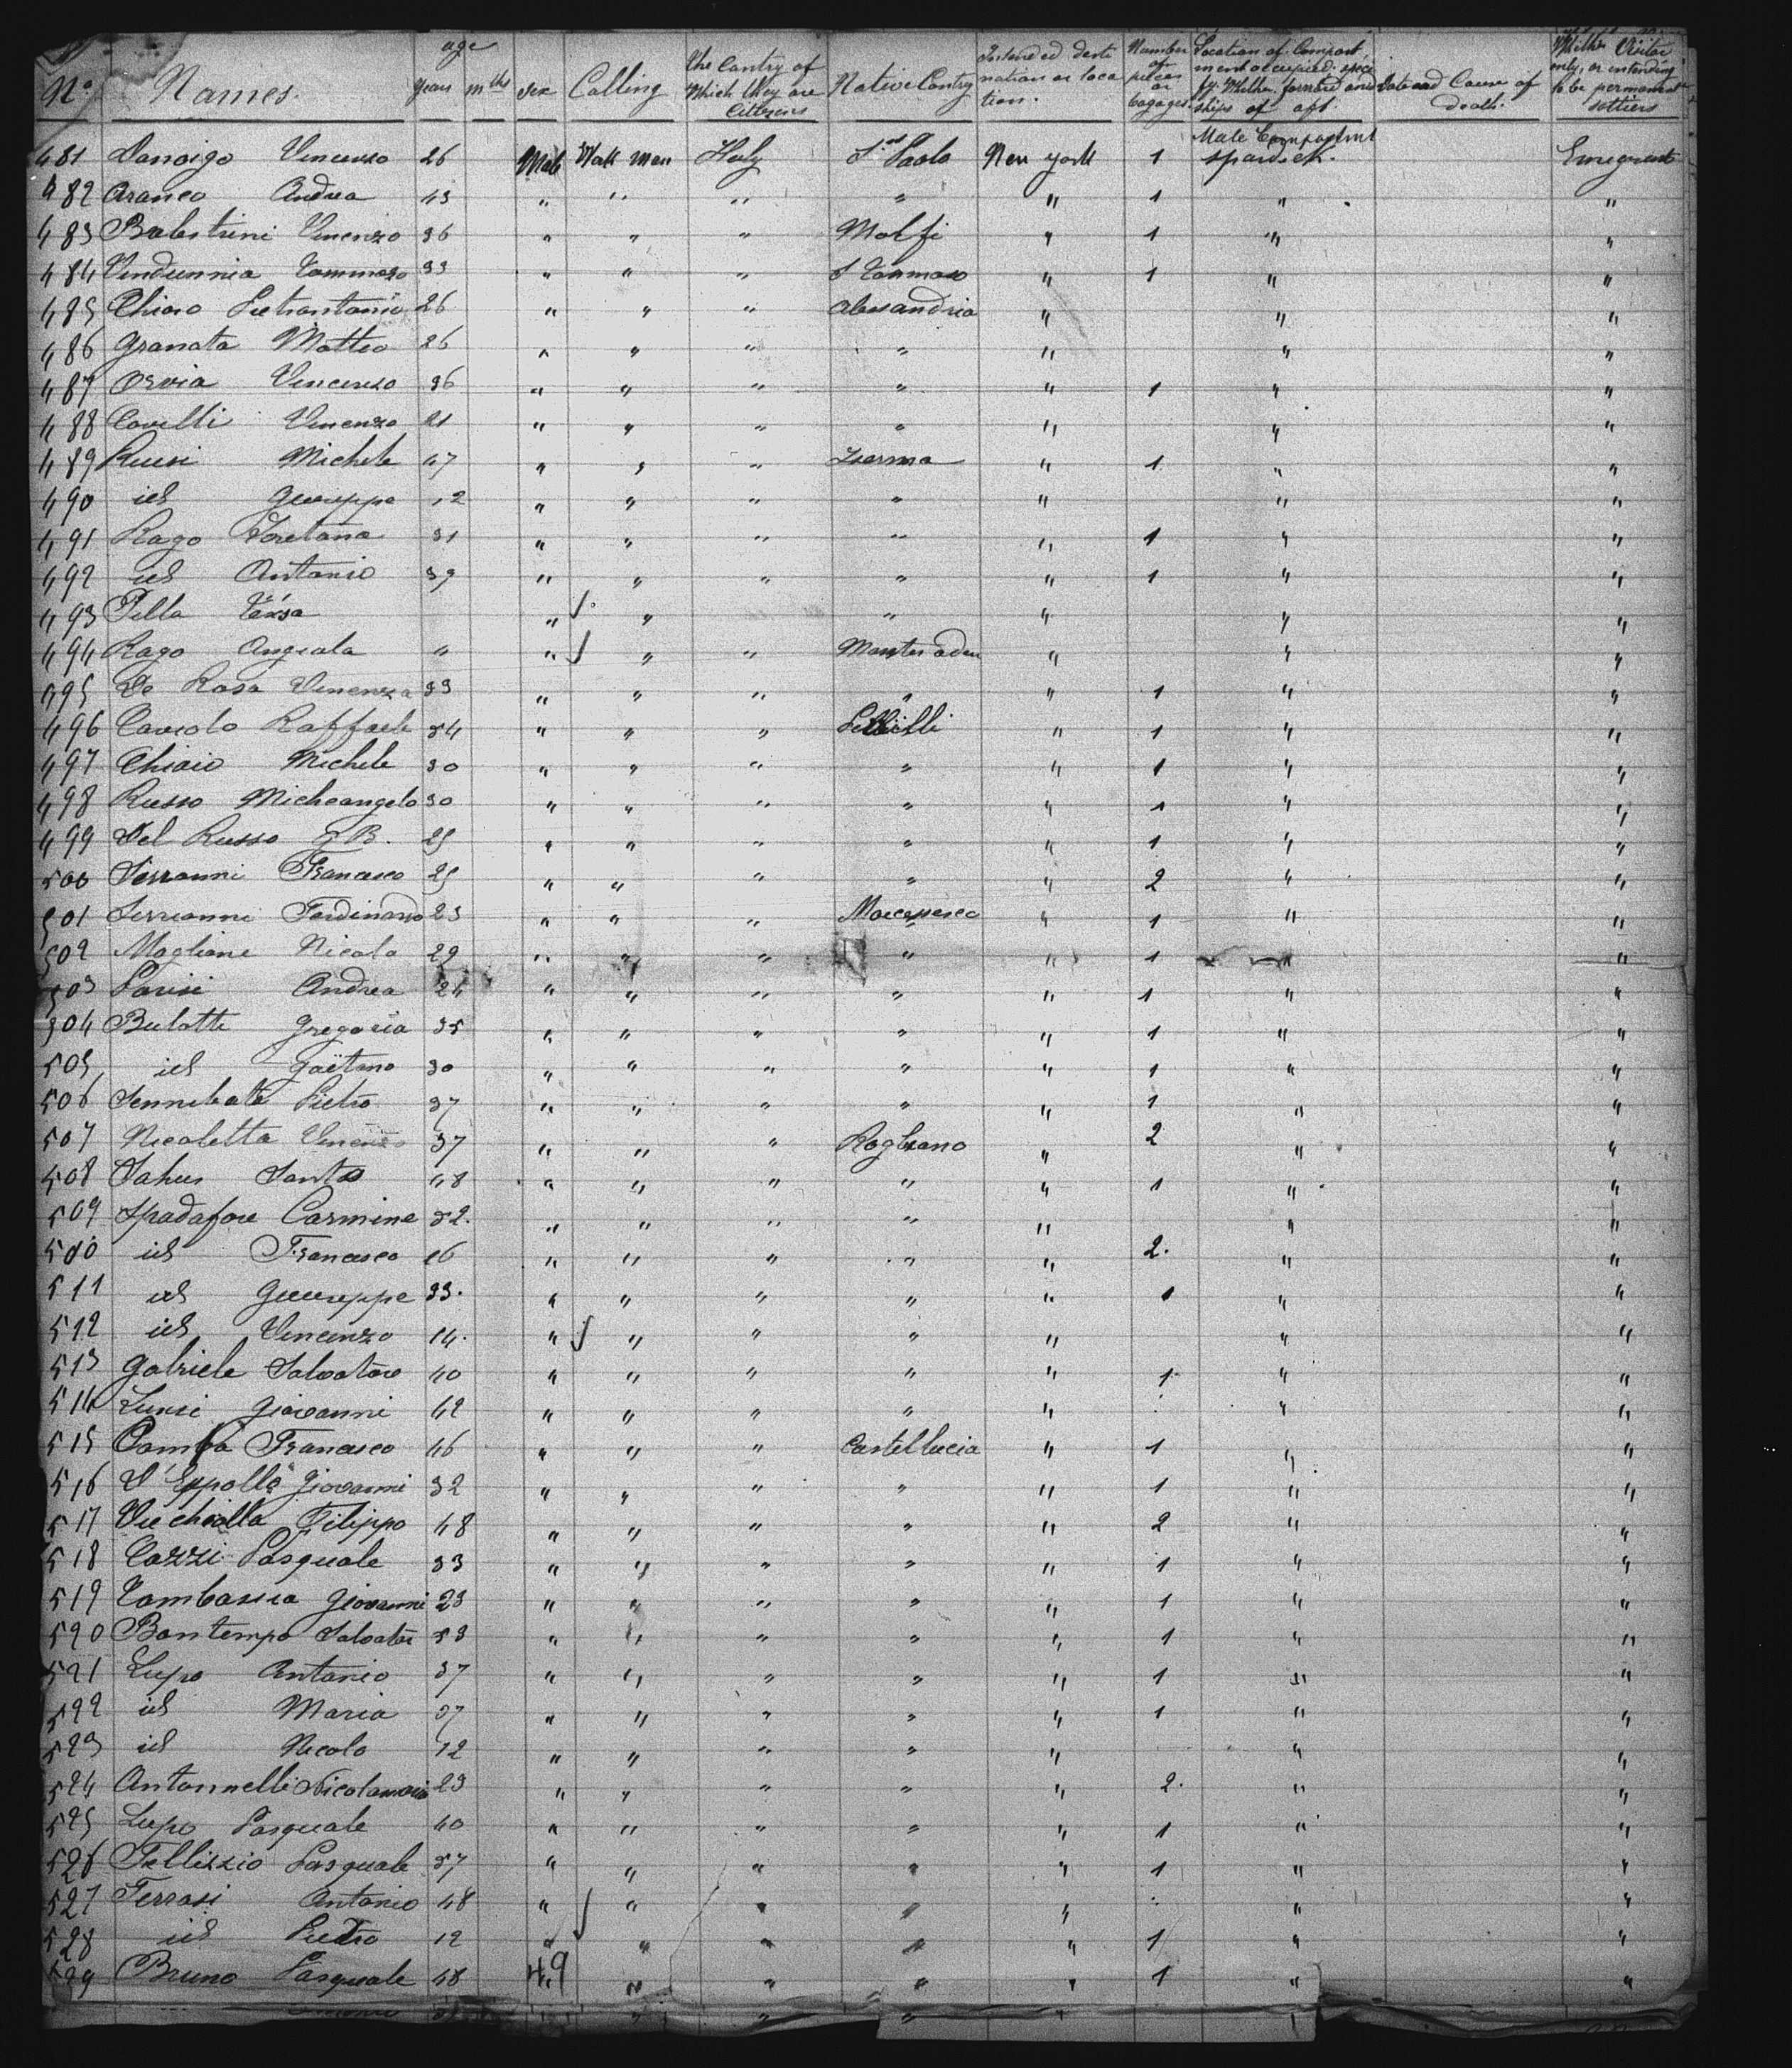 No Names. age years mths Sex Calling the Contry of Which they are Citizens Native Contry Intended desti nation or loca tion. Number of pieces or bagages. Location of Compart ment occupied speci fy Whether forward amid ships of aft Date and Cause of death. Whether Visitor only, or intending to be permanent settlers
481 Vincenzo 26 Male Work Man Italy St Paolo New york 1 Male Compartment Emigrant
482 Araneo Andrea 43 " " " " " 1 " "
483 Balestrini Vincenzo 36 " " " Molfi " 1 " "
484 Vindunnia Tommaso 33 " " " S Tommaso " 1 " "
485 Chiaro Pietrantonio 26 " " " Alessandria " " "
486 Granata Matteo 26 " " " " " " "
487 Orvia Vincenzo 36 " " " " " 1 " "
488 Covelli Vincenzo 21 " " " " " " "
489 Michele 47 " " " " 1 " "
490 id Giuseppe 12 " " " " " " "
491 Rago 31 " " " " " 1 " "
492 id Antonio 39 " " " " " 1 " "
493 Pella " " " " " "
494 Rago Angiola " " " " " " "
495 De Rosa Vincenza 33 " " " " " 1 " "
496 Raffaele 34 " " " " 1 " "
497 Chiaio Michele 30 " " " " " 1 " "
498 Russo Micheangelo 30 " " " " " 1 " "
499 Del Russo G B. 25 " " " " " 1 " "
500 Serranni Francesco 25 " " " " " 2 " "
501 Serrianni Ferdinando 23 " " " " 1 " "
502 Magliane Nicola 29 " " " " " 1 " "
503 Parisi Andrea 24 " " " " " 1 " "
504 Bulotti Gregorio 35 " " " " " 1 " "
505 id Gaëtano 30 " " " " " 1 " "
506 Pietro 37 " " " " " 1 " "
507 Nicoletta Vincenzo 37 " " " Rogliano " 2 " "
508 Santo 48 " " " " " 1 " "
509 Spadafore Carmine 52. " " " " " " "
510 id Francesco 16 " " " " " 2. " "
511 id Giuseppe 33. " " " " " 1 " "
512 id Vincenzo 14. " " " " " " "
513 Gabriele Salvatore 40 " " " " " 1 " "
514 Giovanni 42 " " " " " " "
515 Francesco 46 " " " Castelluccia " 1 " "
516 Giovanni 32 " " " " " 1 " "
517 Vecchiolla Filippo 48 " " " " " 2 " "
518 Cozzi Pasquale 33 " " " " " 1 " "
519 Tambascia Giovanni 23 " " " " " 1 " "
520 Bontempo Salvator 53 " " " " " 1 " "
521 Lupo Antonio 37 " " " " " 1 " "
522 id Maria 37 " " " " " 1 " "
523 id Nicolo 12 " " " " " " "
524 Antonnelli Nicolamaria 23 " " " " " 2. " "
525 Lupo Pasquale 40 " " " " " 1 " "
526 Pasquale 57 " " " " " 1 " "
527 Ferrasi Antonio 48 " " " " " " "
528 id Pietro 12 " " " " " 1 " "
529 Bruno Pasquale 48 49 " " " " " 1 " "